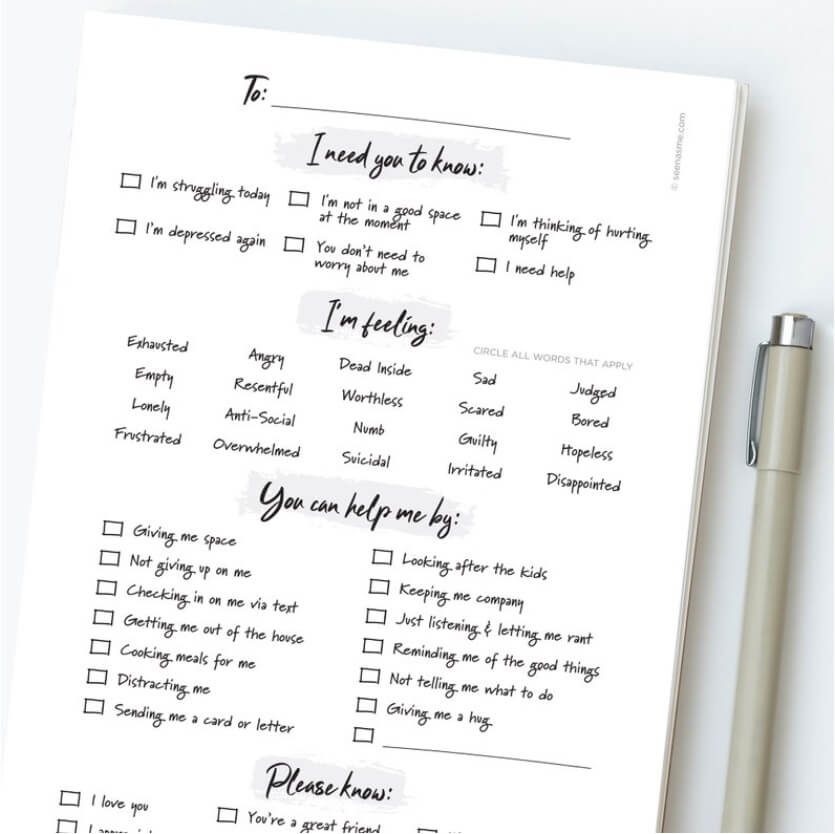 To:
© seenasme.com
I need you to know:
I'm struggling today
I'm not in a good space
at the moment
I'm thinking of hurting
myself
I'm depressed again
You don't need to
worry about me
I need help
I'm feeling:
CIRCLE ALL WORDS THAT APPLY
Exhausted Angry Dead Inside Sad Judged
Empty Resentful Worthless Scared Bored
Lonely Anti-Social Numb Guilty Hopeless
Frustrated Overwhelmed Suicidal Irritated Disappointed
You can help me by:
Giving me space
Not giving up on me
Checking in on me via text
Getting me out of the house
Cooking meals for me
Distracting me
Sending me a card or letter
Looking after the kids
Keeping me company
Just listening & letting me rant
Reminding me of the good things
Not telling me what to do
Giving me a hug
Please know:
I love you
You're a great friend